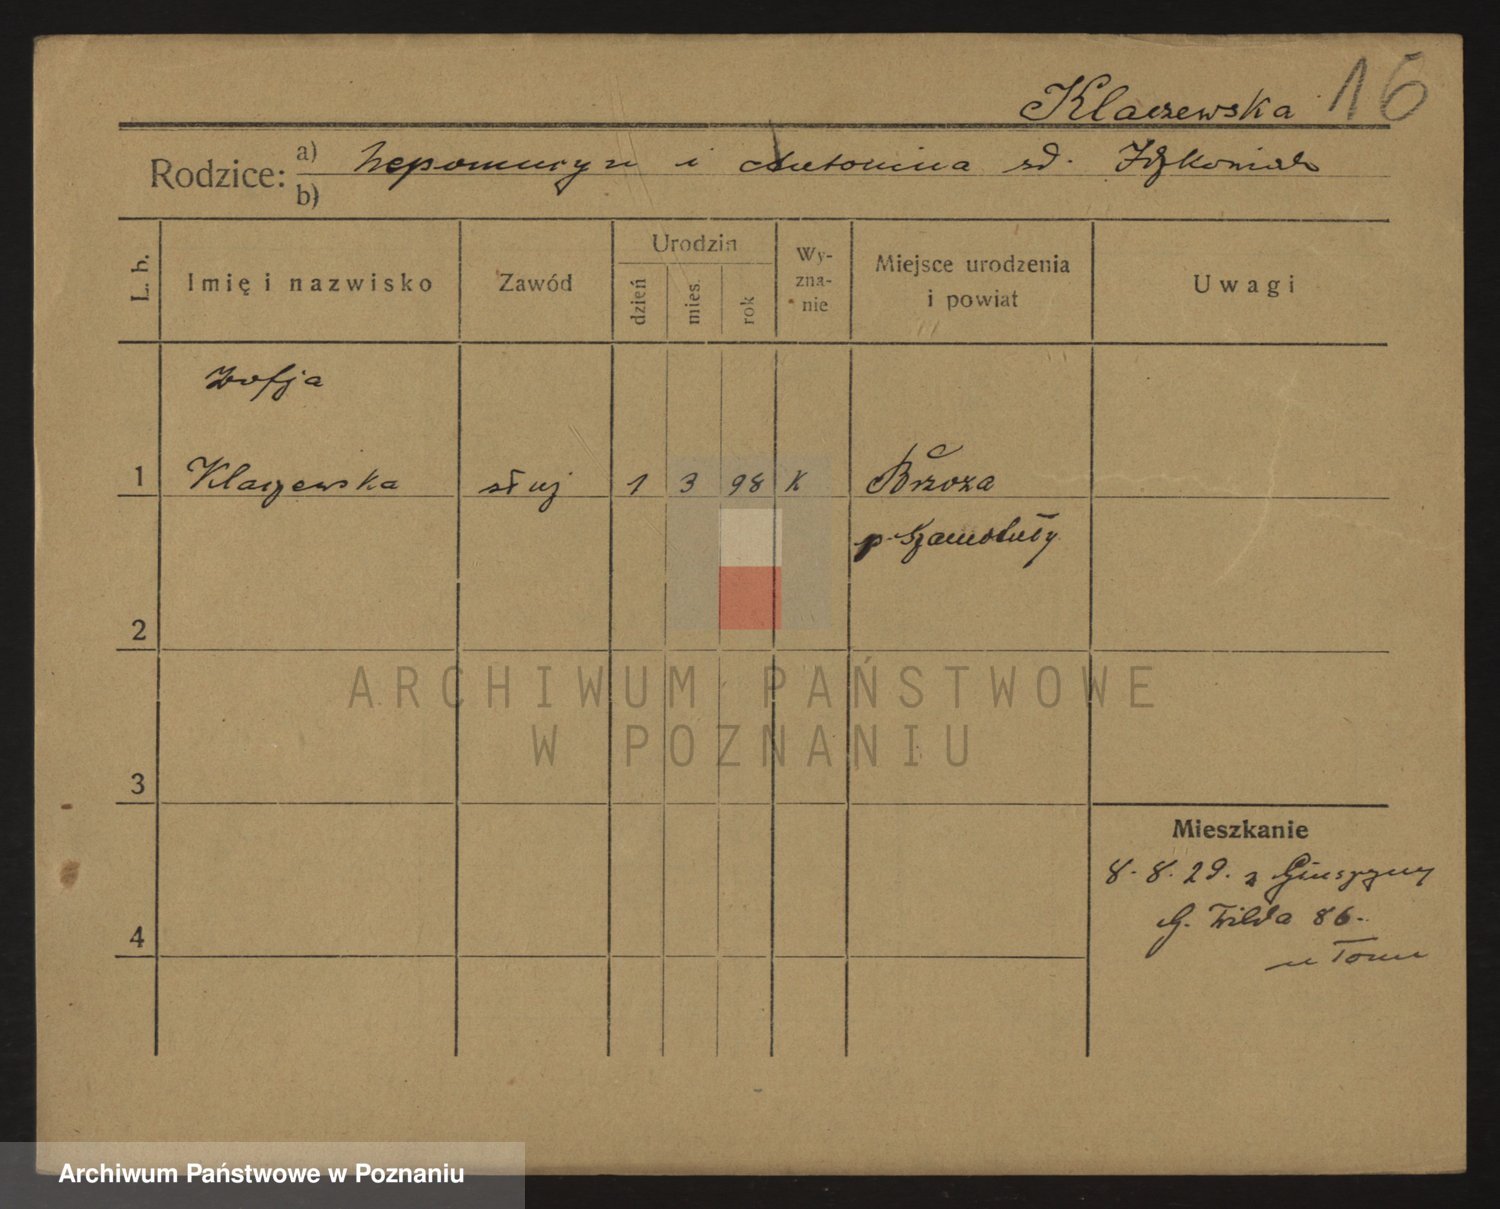 Klaczewska 16
Rodzice: a) Nepomucyn i Antonina zd.
b)
L. b. Imię i nazwisko Zawód Urodzin dzień mies. rok Wyznanie Miejsce urodzenia i powiat Uwagi
Zofja
1 Klaczewska służ 1 3 98 K Brzoza
p. Szamotuły
2
ARCHIWUM PAŃSTWOWE
W POZNANIU
3
Mieszkanie
8. 8. 29. z
G. Wilda 86.
4
Archiwum Państwowe w Poznaniu